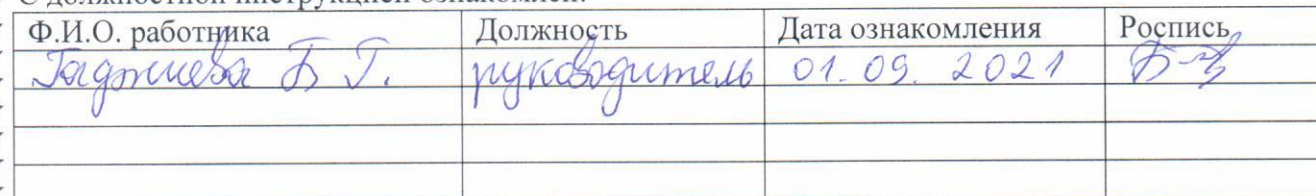 С должностной инструкцией ознакомлен:
Ф.И.О. работника Должность Дата ознакомления Роспись
Гаджиева Б Г. руководитель 01.09.2021